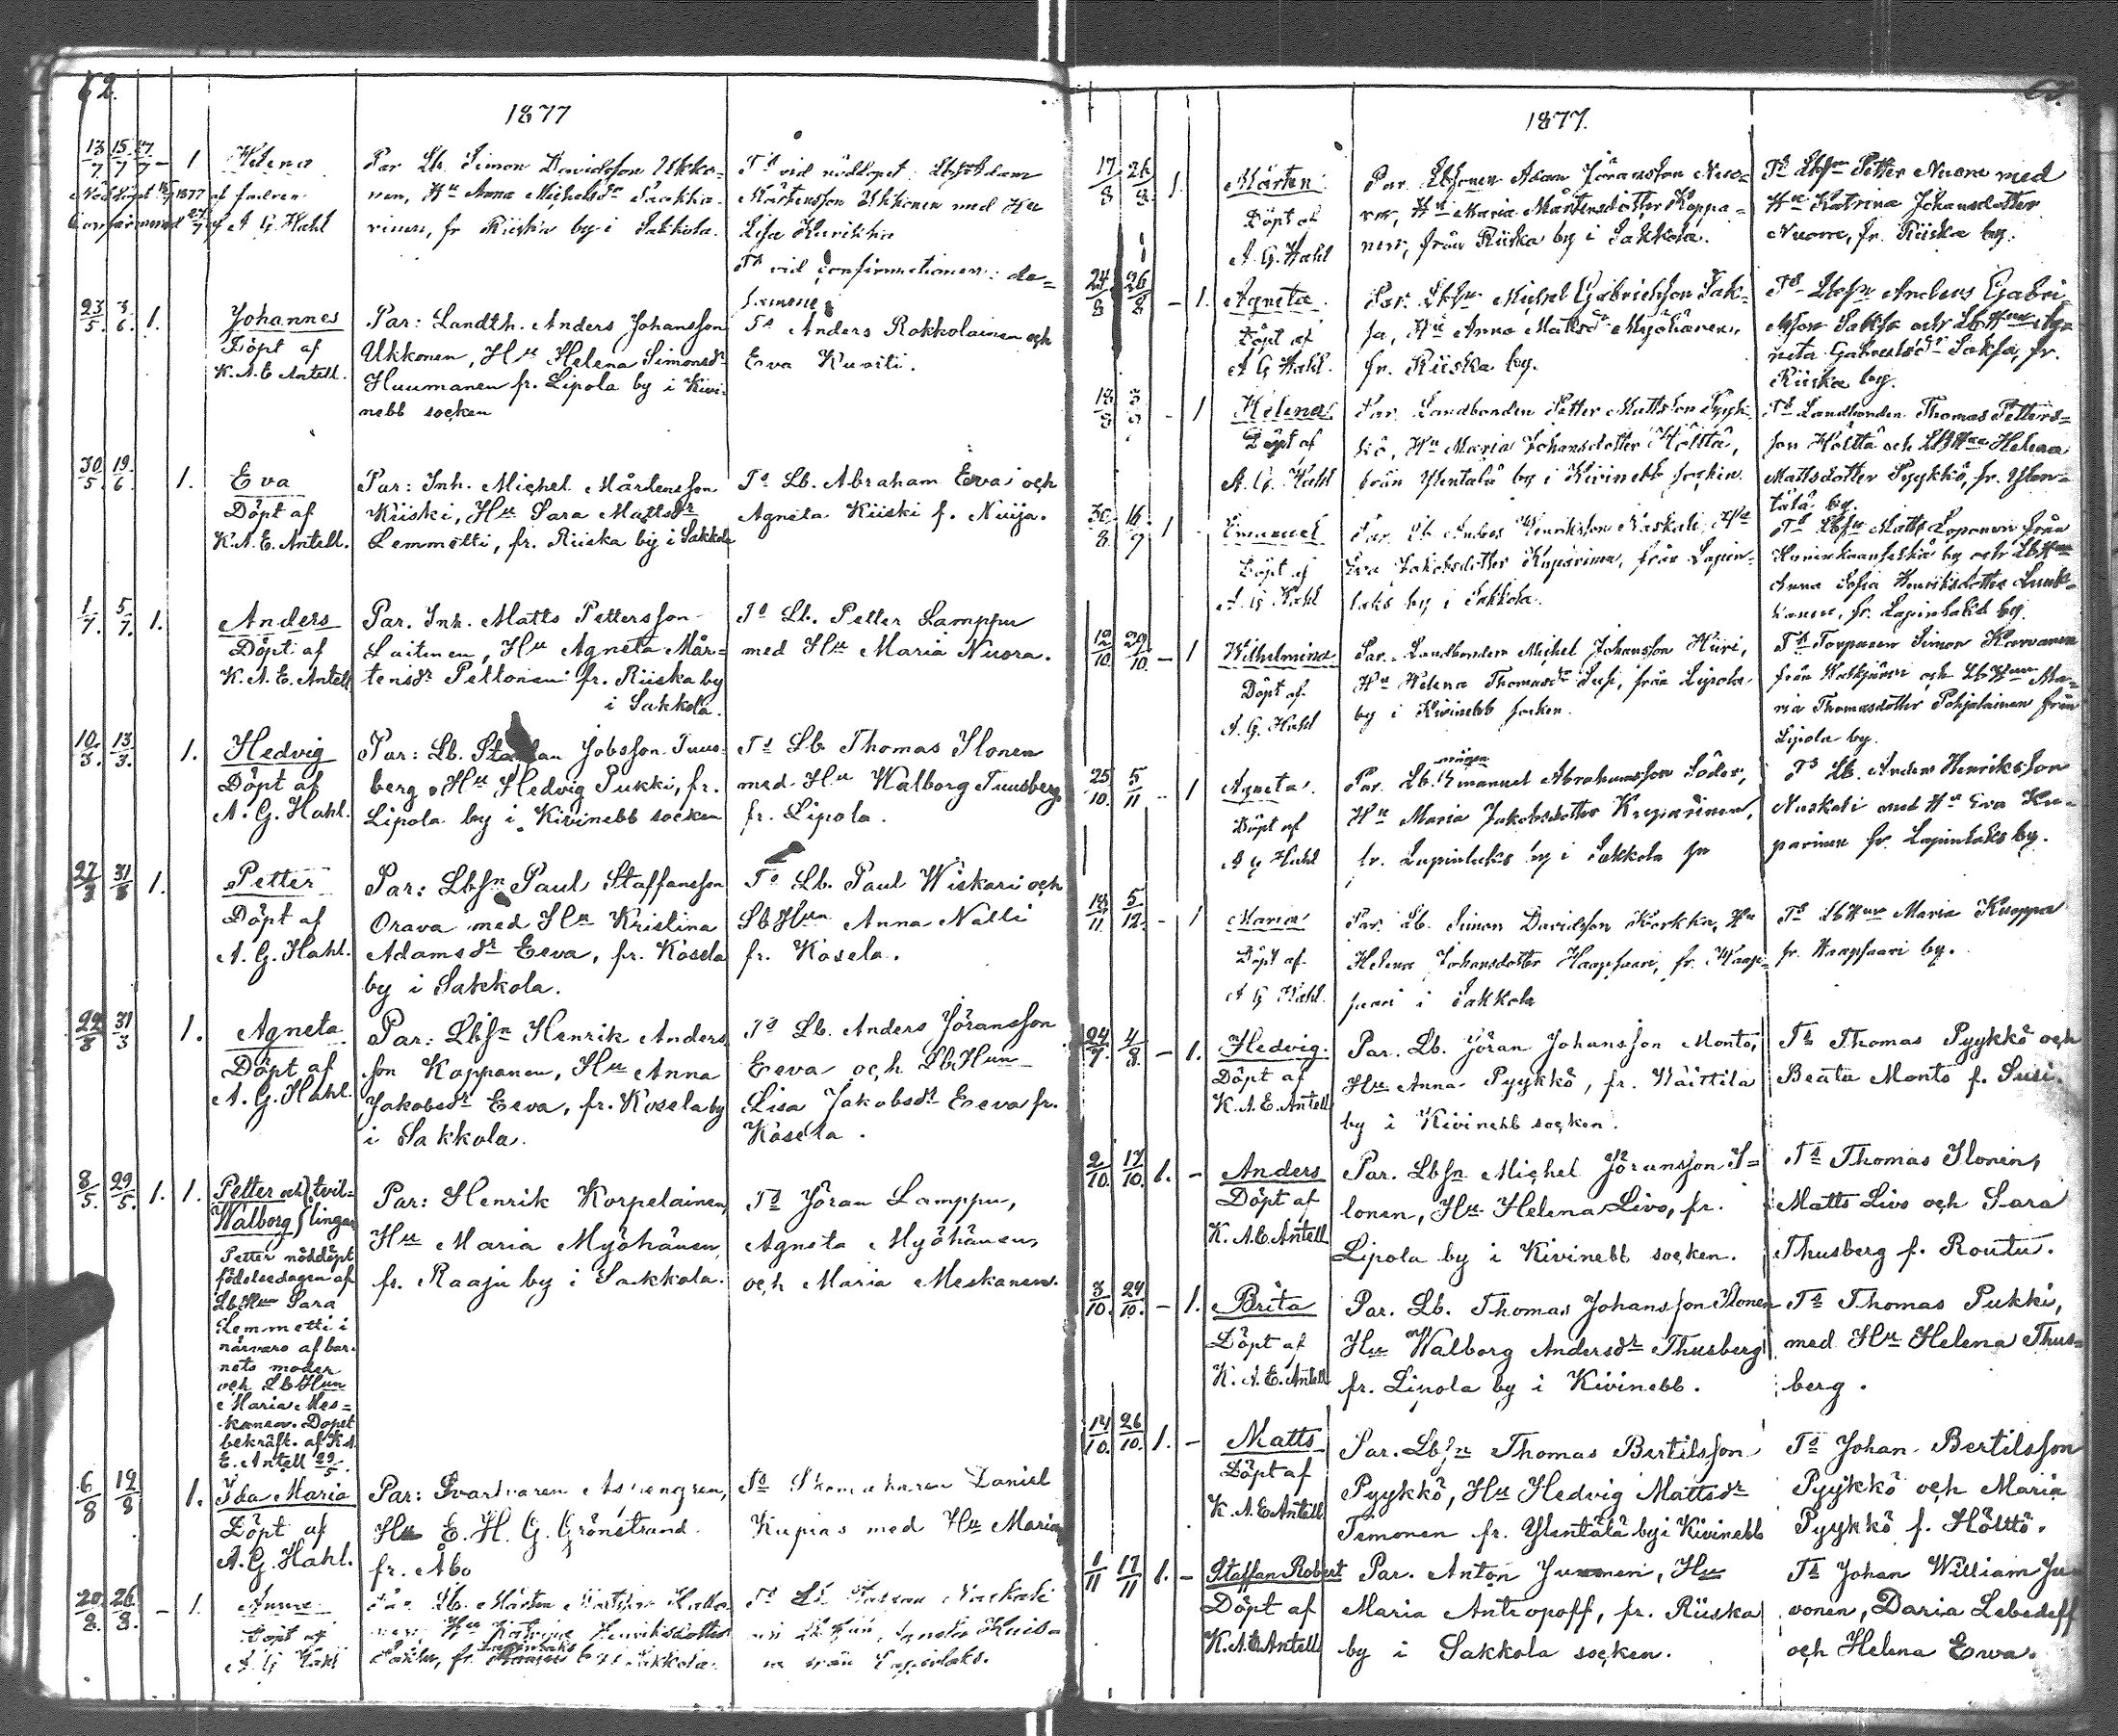 62.
1877
13/7 15/7 27/7 – 1 Helena Par Lb. Simon Davidsson Ukko- Ts vid nöddopet: Lbsn Adam
Nöddöpt 15/7 1877 af fadren nen, Hu Anna Michelsdr Saokka- Mårtensson Ukkonen med Hu
Confirmerad 27/7 af A G Hahl rinen, fr Riiska by i Sakkola. Lisa Kurikka
Ts vid confirmationen: de-
samme
23/5. 3/6. 1. Johannes Par: Landtb. Anders Johansson Ts Anders Rokkolainen och
Döpt af Ukkonen, Hu Helena Simonsdr Eva Kuorti.
K. A. E Antell. Huumanen fr. Lipola by i Kivi-
nebb socken
30/5. 19/6. 1. Eva Par: Inh. Michel Mårtensson Ts Lb. Abraham Eeva och
Döpt af Kiiski, Hu Sara Mattsdr Agneta Kiiski f. Niija.
K. A. E. Antell. Lemmetti, fr. Riiska by i Sakkola
1/7. 5/7. 1. Anders Par. Inh. Matts Pettersson Ts Lb. Petter Lamppu
Döpt af Laitinen, Hu Agneta Mår- med Hu Maria Nuora.
K. A. E. Antell tensdr Peltonen fr. Riiska by
i Sakkola.
10/3. 13/3. 1. Hedvig Par: Lb. Staffan Jobsson Tuus- Ts Lb Thomas Ilonen
Döpt af berg, Hu Hedvig Pukki, fr. med Hu Walborg Tuusberg
A. G. Hahl. Lipola by i Kivinebb socken fr. Lipola.
27/3 31/3 1. Petter Par: Lbsn Paul Staffansson Ts Lb. Paul Wiskari och
Döpt af Orava med Hu Kristina LbHun Anna Nalli
A. G. Hahl. Adamsdr Eeva, fr. Kosela fr. Kosela.
by i Sakkola.
29/3 31/3 1. Agneta Par: Lbsn Henrik Anders Ts Lb. Anders Jöransson
Döpt af son Koppanen, Hu Anna Eeva och LbHun
A. G. Hahl. Jakobsdr Eeva, fr. Kosela by Lisa Jakobsdr Eeva fr.
i Sakkola. Kosela.
8/5. 29/5. 1. 1. Petter och } tvil-
Walborg } lingar Par: Henrik Korpelainen, Ts Jöran Lamppu,
Petter nöddöpt Hu Maria Myöhänen, Agneta Myöhänen,
födelsedagen af fr. Raaju by i Sakkola. och Maria Meskanen.
LbHun Sara
Lemmetti i
närvaro af bar-
nets moder
och LbHun
Maria Mes-
kanen. Dopet
bekräft. af K A
E. Antell 29/5.
6/8 12/8 1. Ida Maria Par: Svarvaren Ts Skomakaren Daniel
Döpt af Hu E. H. G. Grönstrand Kupias med Hu Maria
A. G. Hahl. fr. Åbo
20/8. 26/8. – 1. Anna Par Lb. Mårten Ts Lb.
Döpt af Hu Katrina Henriksdotter
A G Hahl fr. Lapinlaks by i Sakkola. från Lapinlaks.
63.
1877.
17/8 26/8. 1. Mårten Par. Lbsonen Adam Jöransson Nuo- Ts Lbsn Petter Nuora med
Döpt af ra, Hu Maria Mårtensdotter Koppa- Hu Katrina Johansdotter
A. G. Hahl nen, från Riiska by i Sakkola. Nuora, fr. Riiska by.
24/8 26/8 – 1. Agneta Par. Lbsn Michel Gabrielsson Sak- Ts Lbsn Anders Gabri-
Döpt af sa, Hu Anna Mattsdr Myöhänen, elsson Saksa och LbHun Ag-
A G Hahl. fr. Riiska by. neta Gabrielsdr Saksa, fr.
Riiska by.
– 1 Helena Par. Landbonden Petter Mattsson Pyyk- Ts Landbonden Thomas Petters-
Döpt af kö, Hu Maria Johansdotter Hölttä, son Hölttä och LbHun Helena
A. G. Hahl från Ylentälä by i Kivinebb socken. Mattsdotter Pyykkö, fr. Ylen-
tälä by.
30/8 1 Emanuel Par. Lb Anders Henriksson Naskali, Hu Ts Lbsn Matts Loponen från
Döpt af Eva Jakobsdotter Kuparinen, från Lapin- by och LbHun
A. G Hahl laks by i Sakkola. Anna Sofia Henriksdotter
fr. Lapinlaks by.
12/10. 29/10. – 1 Wilhelmina Par. Landbonden Michel Johansson Hiiri, Ts Torparen Simon Karvanen
Döpt af Hu Helena Thomasdr Susi, från Lipola från Walkjärvi och LbHun Ma-
A. G. Hahl by i Kivinebb socken. ria Thomasdotter Pohjalainen från
Lipola by.
25/10. 5/11 – 1 Agneta Par. Lb. Emanuel Abrahamsson Söder, Ts Lb. Anders Henriksson
Döpt af Hu Maria Jakobsdotter Kuparinen, Naskali med Hu Eva Ku-
A G Hahl fr. Lapinlaks by i Sakkola parinen fr. Lapinlaks by.
18/11. 5/12. – 1 Maria Par. Lb. Simon Davidsson Korkka, Hu Ts LbHun Maria Kuoppa
Döpt af Helena Johansdotter Haapsaari, fr. Haap- fr. Haapsaari by.
A G Hahl. saari i Sakkola
24/7. 4/8 – 1. Hedvig. Par. Lb. Jöran Johansson Monto, Ts Thomas Pyykkö och
Döpt af Hu Anna Pyykkö, fr. Wäittilä Beata Monto f. Susi.
K. A. E. Antell by i Kivinebb socken.
2/10. 17/10. 1. – Anders Par. Lbsn Michel Jöransson I- Ts Thomas Ilonen,
Döpt af lonen, Hu Helena Livo, fr. Matts Livo och Sara
K. A. E Antell Lipola by i Kivinebb socken. Thusberg f. Routu.
3/10. 24/10. – 1. Brita Par. Lb. Thomas Johansson Ilonen Ts Thomas Pukki,
Döpt af Hu Walborg Andersdr Thusberg med Hu Helena Thus-
K. A. E. Antell fr. Lipola by i Kivinebb. berg.
14/10. 26/10. 1. – Matts Par. Lbsn Thomas Bertilsson Ts Johan Bertilsson
Döpt af Pyykkö, Hu Hedvig Mattsdr Pyykkö och Maria
K. A. E Antell Temonen fr. Ylentälä by i Kivinebb Pyykkö f. Hölttö.
1/11 17/11 1. – Staffan Robert Par. Anton Hu Ts Johan William Ju-
Döpt af Maria Antropoff, fr. Riiska vonen, Daria Lebedeff
K. A. E Antell by i Sakkola socken. och Helena Erva.